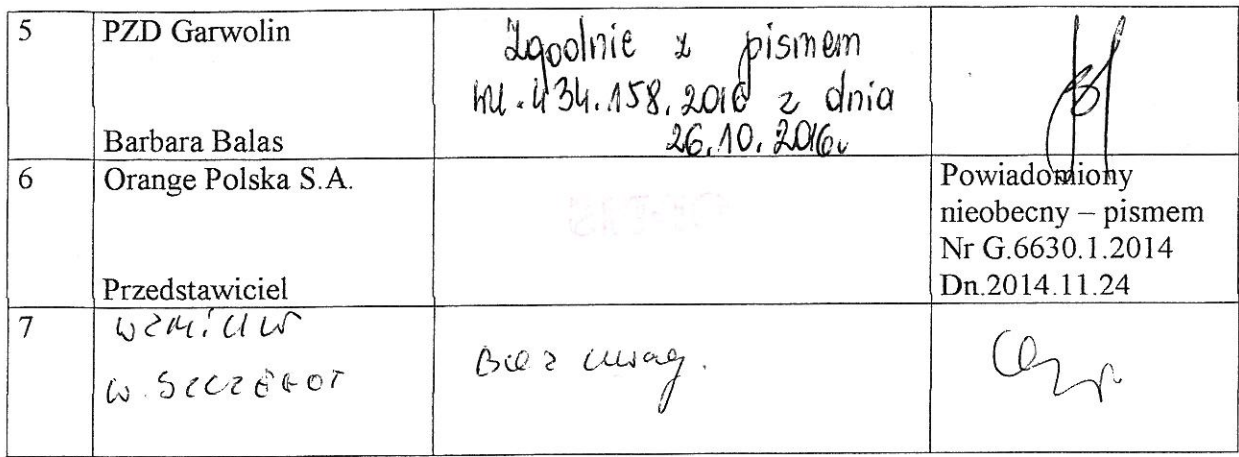 5 PZD Garwolin
Zgodnie z pismem
nr.434.158.2016 z dnia
26.10.2016r
Barbara Balas
6 Orange Polska S.A.
Przedstawiciel
Powiadomiony
nieobecny – pismem
Nr G.6630.1.2014
Dn.2014.11.24
7 WZMiUW
W. SZCZĘGOT
Bez uwag.